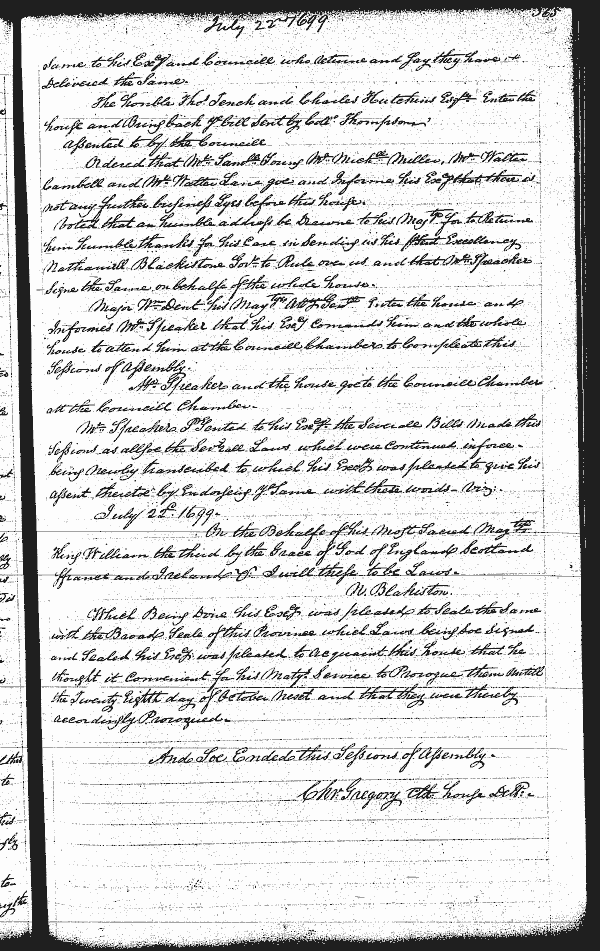 July 22d 1699
365
Same to his Excy and Councill who returne and Say they have
Delivered the Same.
The honble Tho: Tench and Charles Hutchins Esqrs Enter the
house and Bring back ye bill Sent by Collo Thompson.
Assented to by the Councill
Ordered that Mr Samll Young Mr Michll Miller, Mr Walter
Cambell and Mr Walter Lane goe and Informe his Excy that there is
not any further business Lyes before this house.
Voted that an humble address be Drawne to his Majty for to Returne
him humble thanks for his Care in Sending us his Excellency
Nathaniell Blackistone Govr to Rule over us and that Mr Speacker
Signe the Same on behalfe of the whole house.
Major Wm Dent his Majtys Atty Genll Enter the house and
Informes Mr Speaker that his Excy Comands him and the whole
house to attend him at the Councill Chamber to Compleate this
Sessions of Assembly.
Mr Speaker and the house goe to the Councill Chamber
att the Councill Chamber.
Mr Speaker Psented to his Excy the Severall Bills made this
Sessions as allsoe the Severall Laws which were Continued inforce
being newly transcribed to which his Excy was pleased to give his
assent thereto by Endorseing ye Same with these words Viz:
July 22d 1699.
On the Behalfe of his Most Sacred Majty
King William the third by the Grace of God of England Scotland
ffrance and Ireland &c. I will these to be Laws.
N. Blakiston.
Which Being Done his Excy was pleased to Seale the Same
with the Broad Seale of this Province which Laws being soe Signed
and Sealed his Excy was pleased to Acquaint this house that he
thought it Convenient for his Majtys Service to Prorogue them untill
the Twenty Eighth day of October next and that they were thereby
accordingly Prorogued.
And Soe Ended this Sessions of Assembly.
Chr: Gregory Clk house Del